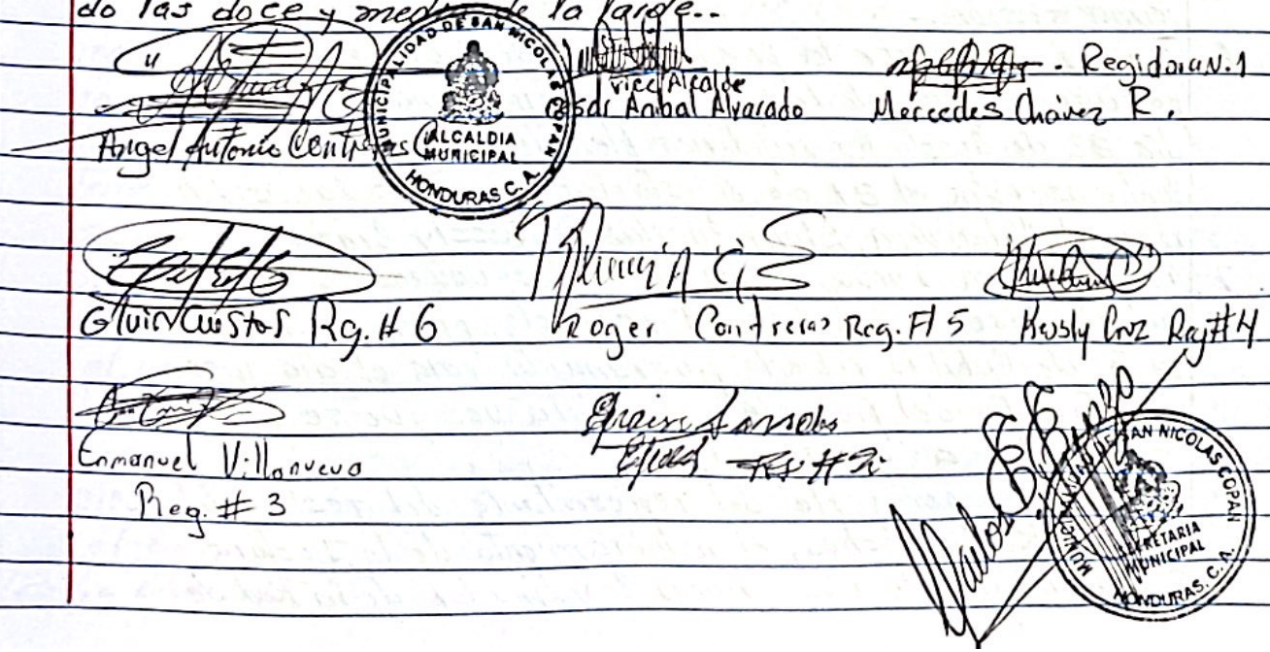 do las doce y media de la tarde..
Angel Antonio Contreras
MUNICIPALIDAD DE SAN NICOLAS COPAN
ALCALDIA
MUNICIPAL
HONDURAS C. A.
Vice Alcalde
Anibal Alvarado
Regidora N.1
Mercedes Chávez R.
Elvin Cuestas Rg. # 6
Roger Contreras Reg. # 5
Cruz Reg #4
Enmanuel Villanueva
Reg # 3
Reg # 2
MUNICIPALIDAD DE SAN NICOLAS COPAN
SECRETARIA
MUNICIPAL
HONDURAS. C. A.